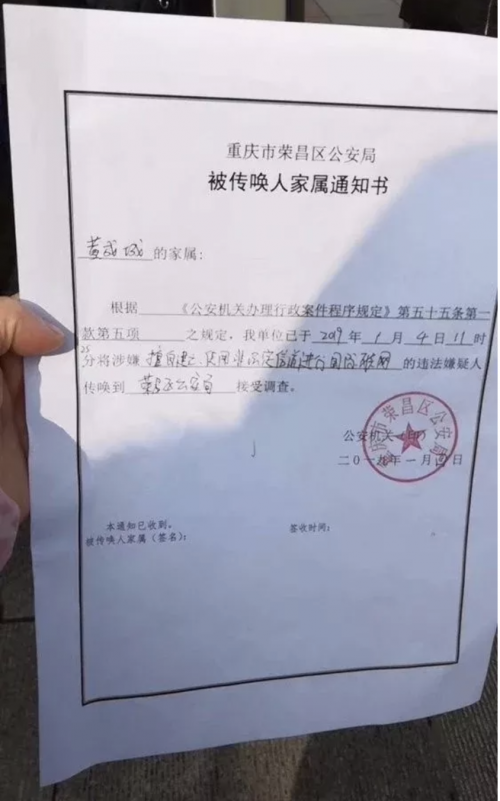 重庆市荣昌区公安局
被传唤人家属通知书
黄成城的家属:
根据 《公安机关办理行政案件程序规定》第五十五条第一
款第五项 之规定，我单位已于2019年1月4日11时
25分将涉嫌擅自建立、使用非法定信道进行国际联网的违法嫌疑人
传唤到荣昌区公安局接受调查。
公安机关（印）
二0一九年一月四日
重庆市荣昌区公安局
本通知已收到。
被传唤人家属（签名）: 签收时间: